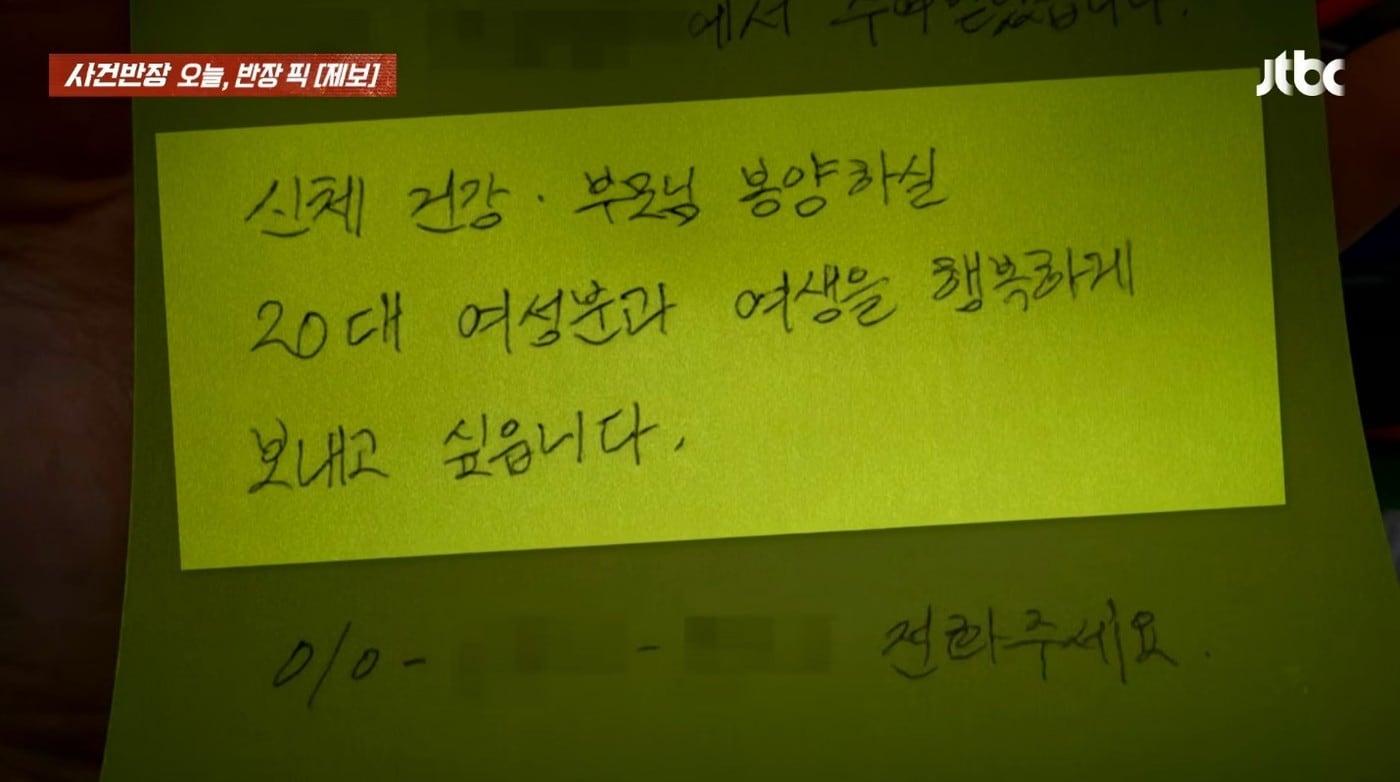 에서
사건반장 오늘, 반장 픽 [제보]
jtbc
신체 건강·부모님 봉양하실
20대 여성분과 여생을 행복하게
보내고 싶읍니다.
010- - 전화주세요.